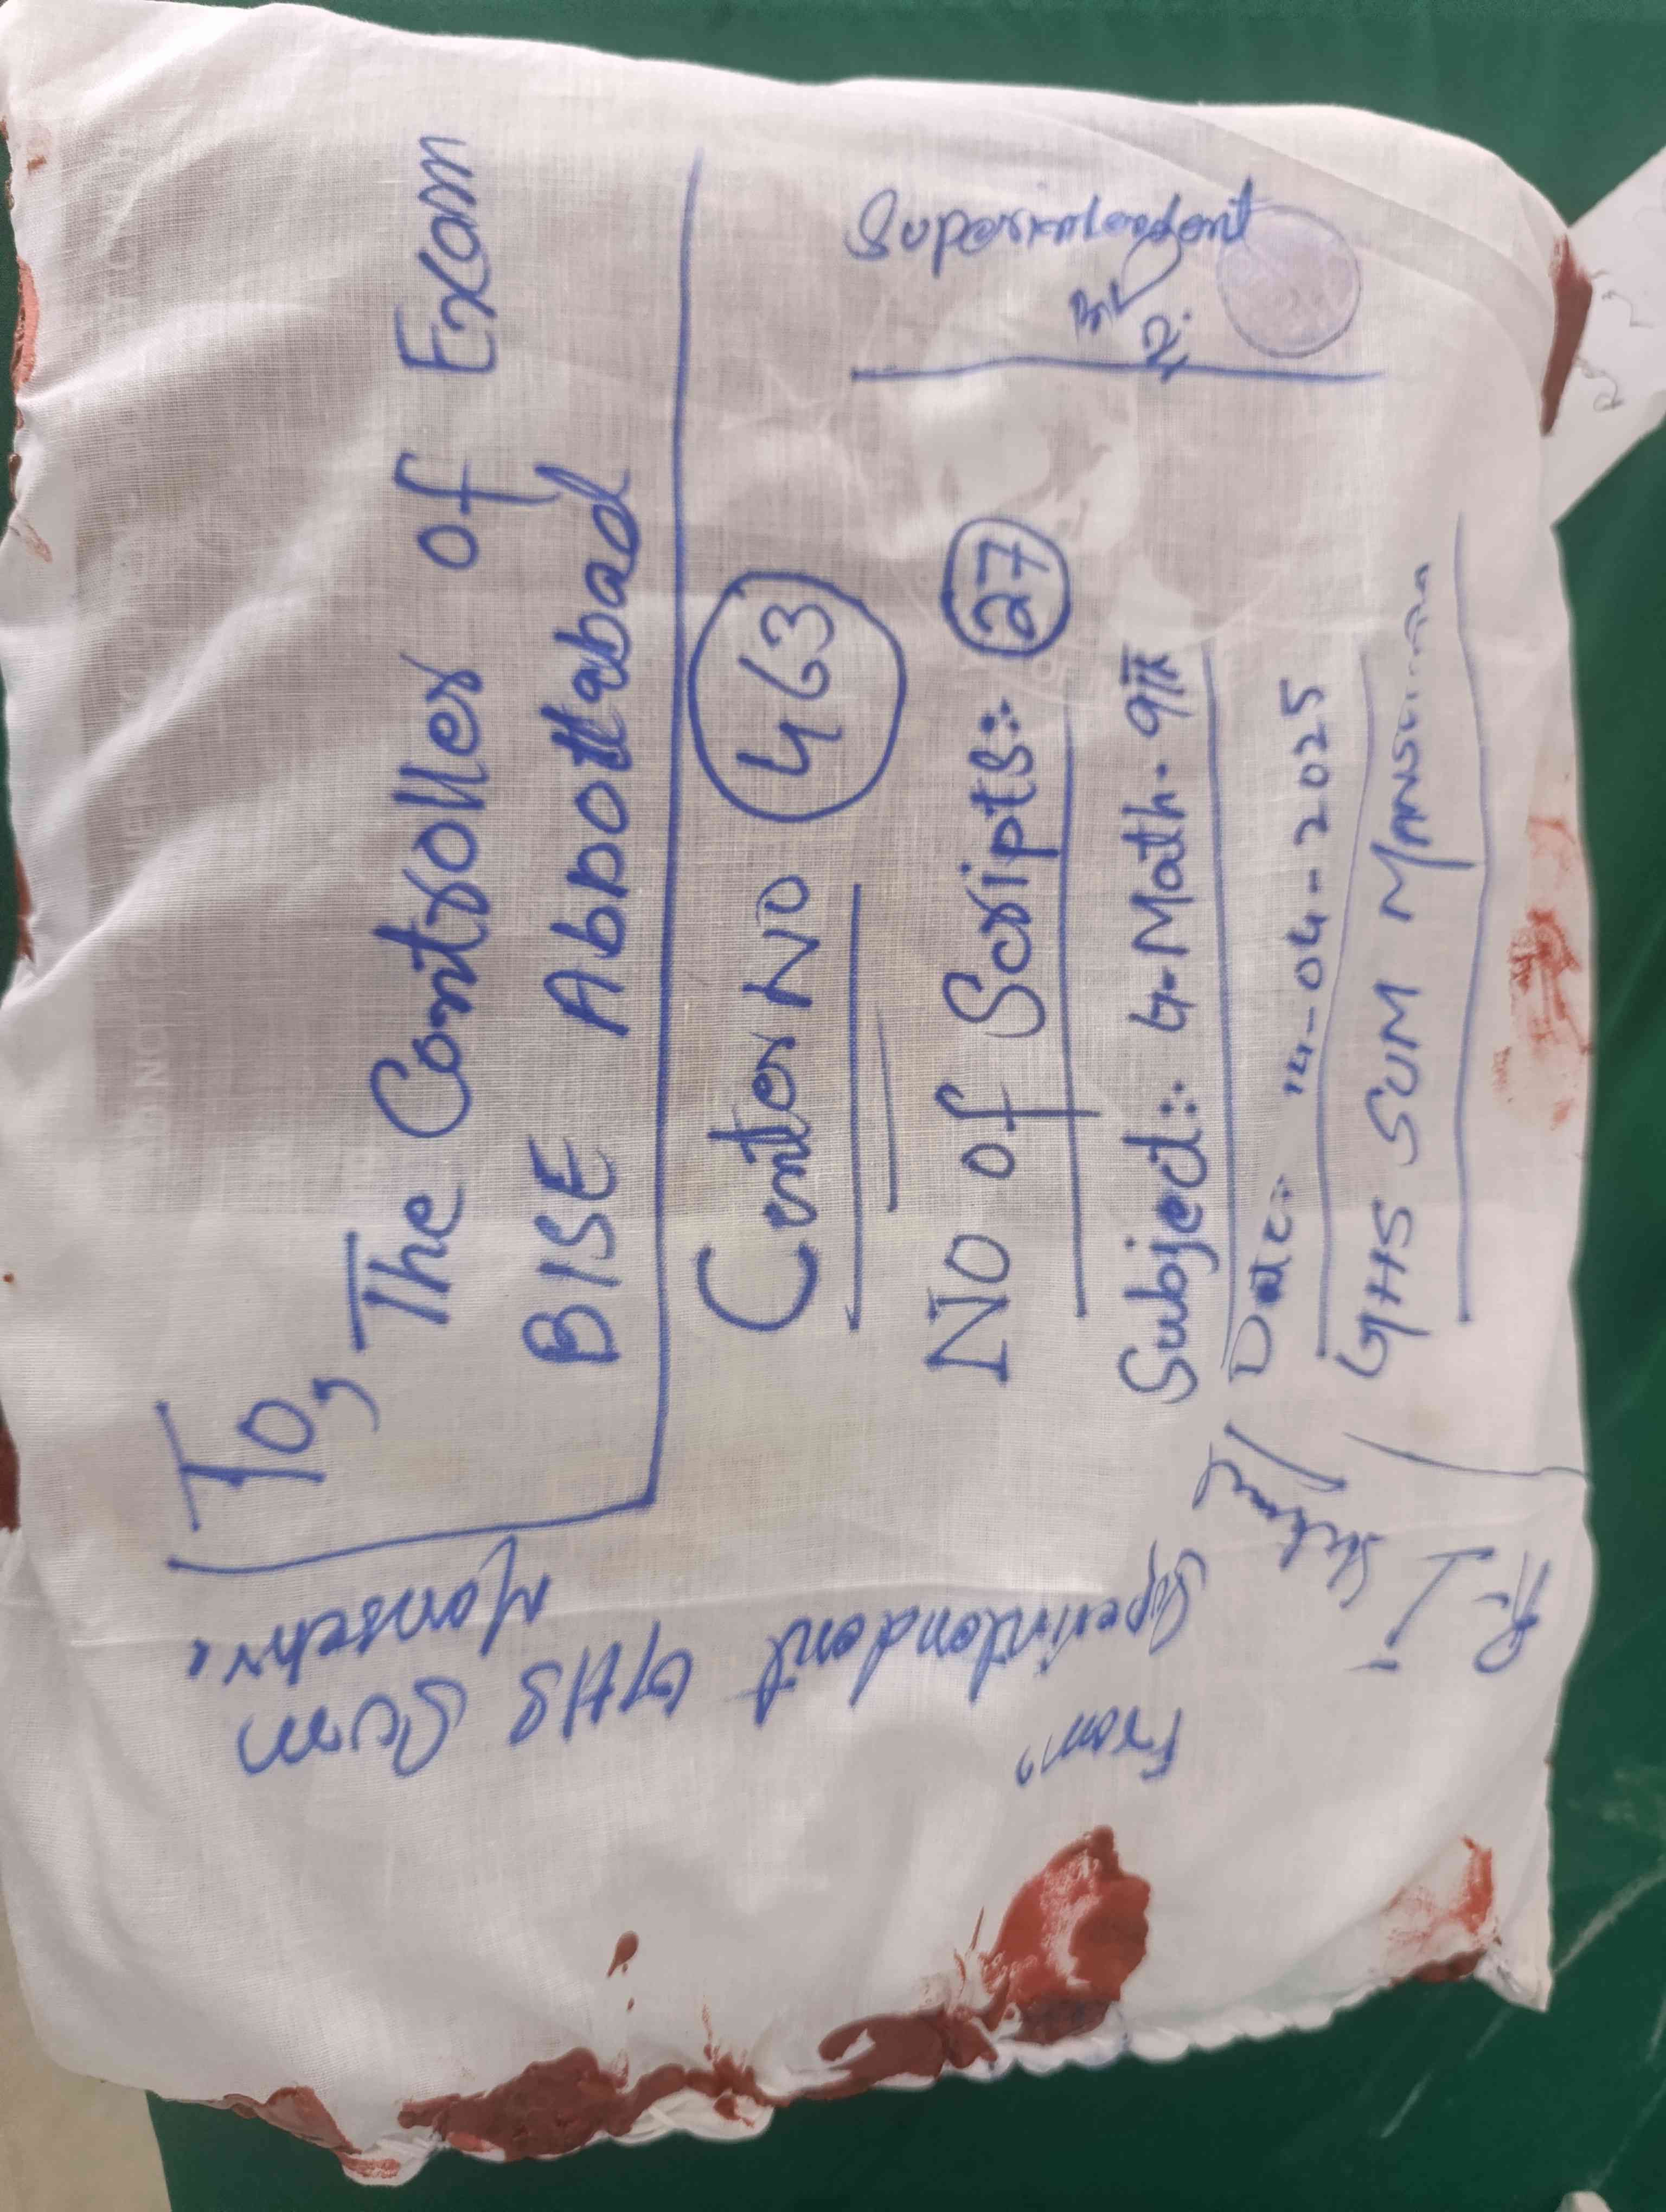 To,
The Controller of Exam
BISE Abbottabad
Center No 463
No of Scripts:- 27
Subject:- G-Math- 9th
Date:- 14-04-2025
GHS SUM MANSEHRA
Superintendent
From,
Superintendent GHS Sum
Mansehra